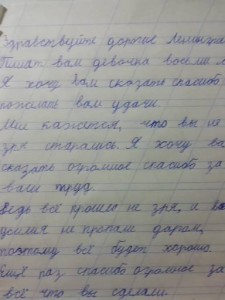 Здравствуйте дорогие
Пишет вам девочка восьми л
Я хочу вам сказать спасибо
пожелать вам удачи.
Мне кажется, что вы не
зря старались. Я хочу ва
сказать огромное спасибо за
ваш труд.
Ведь всё прошло не зря, и ва
усилия не пропали даром,
поэтому всё будет хорошо.
Ещё раз спасибо огромное за
всё что вы сделали.